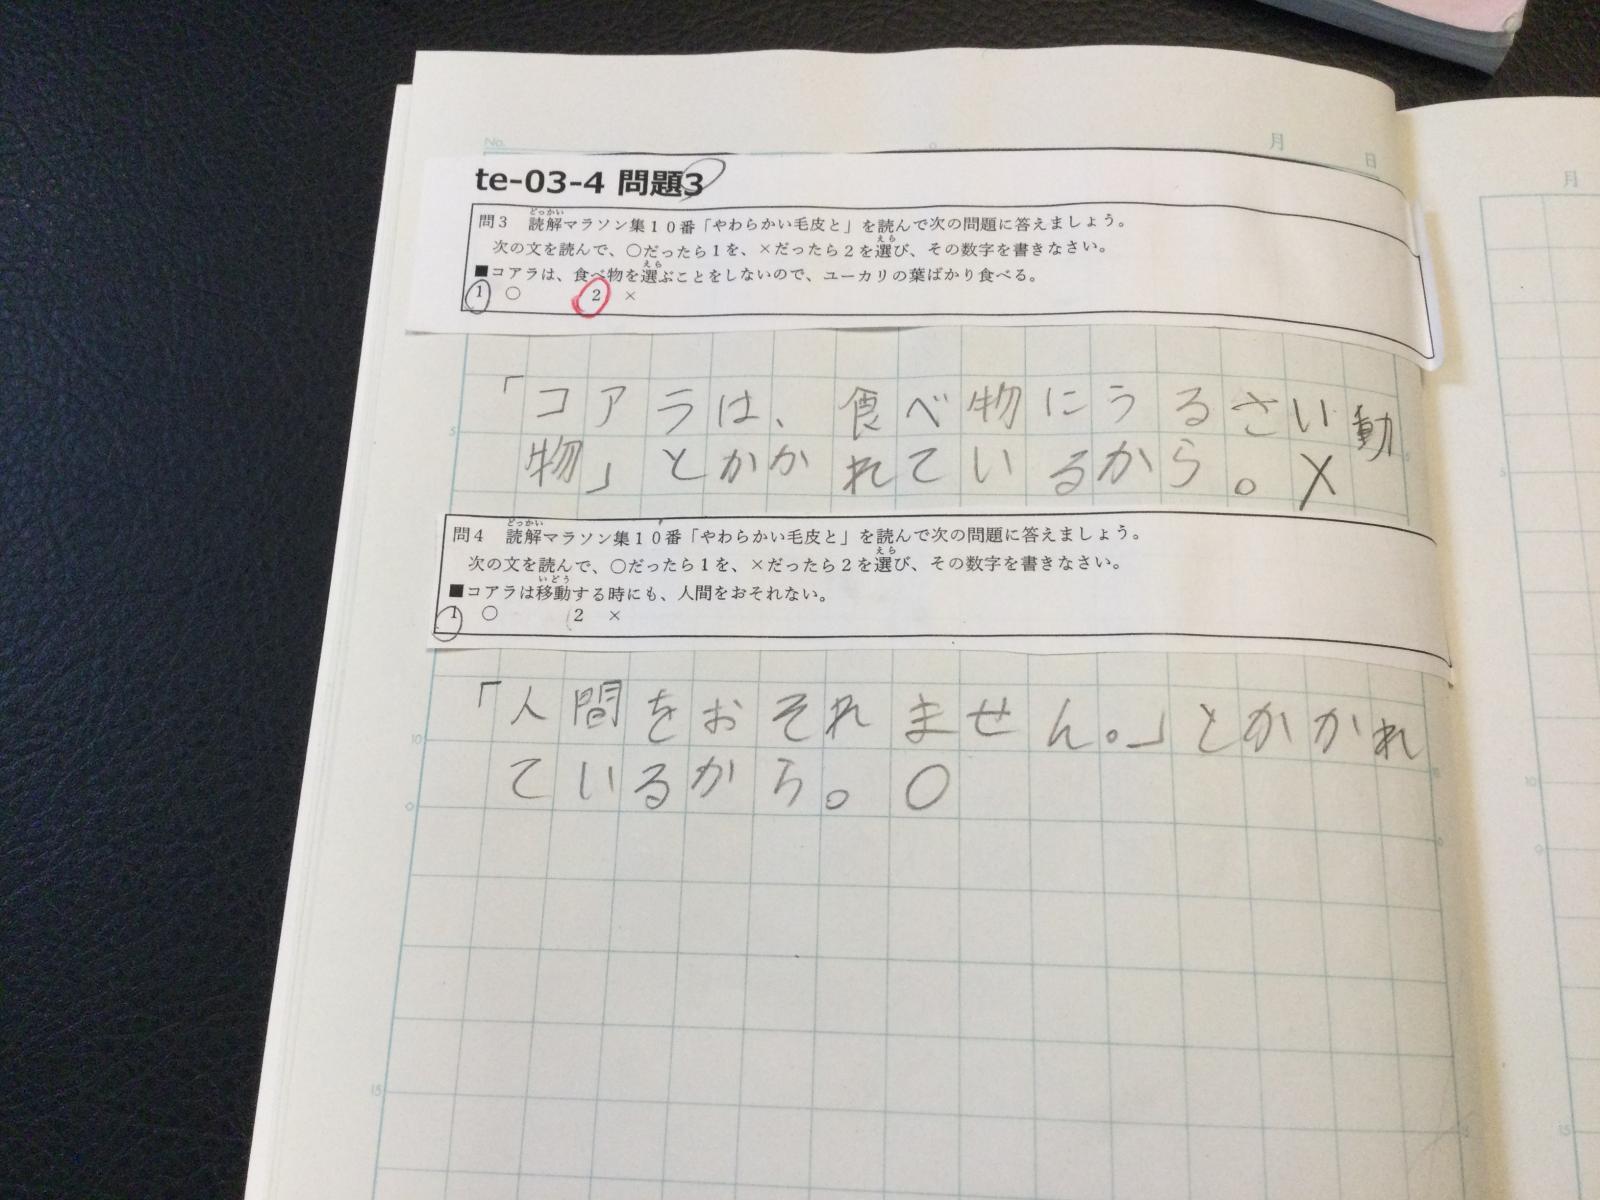 No.
月
日
月
te-03-4 問題3
問3 読解マラソン集10番「やわらかい毛皮と」を読んで次の問題に答えましょう。
次の文を読んで、○だったら1を、×だったら2を選び、その数字を書きなさい。
■コアラは、食べ物を選ぶことをしないので、ユーカリの葉ばかり食べる。
1 ○ 2 ×
「コアラは、食べ物にうるさい動
物」とかかれているから。×
問4 読解マラソン集10番「やわらかい毛皮と」を読んで次の問題に答えましょう。
次の文を読んで、○だったら1を、×だったら2を選び、その数字を書きなさい。
■コアラは移動する時にも、人間をおそれない。
1 ○ 2 ×
「人間をおそれません。」とかかれ
ているから。○